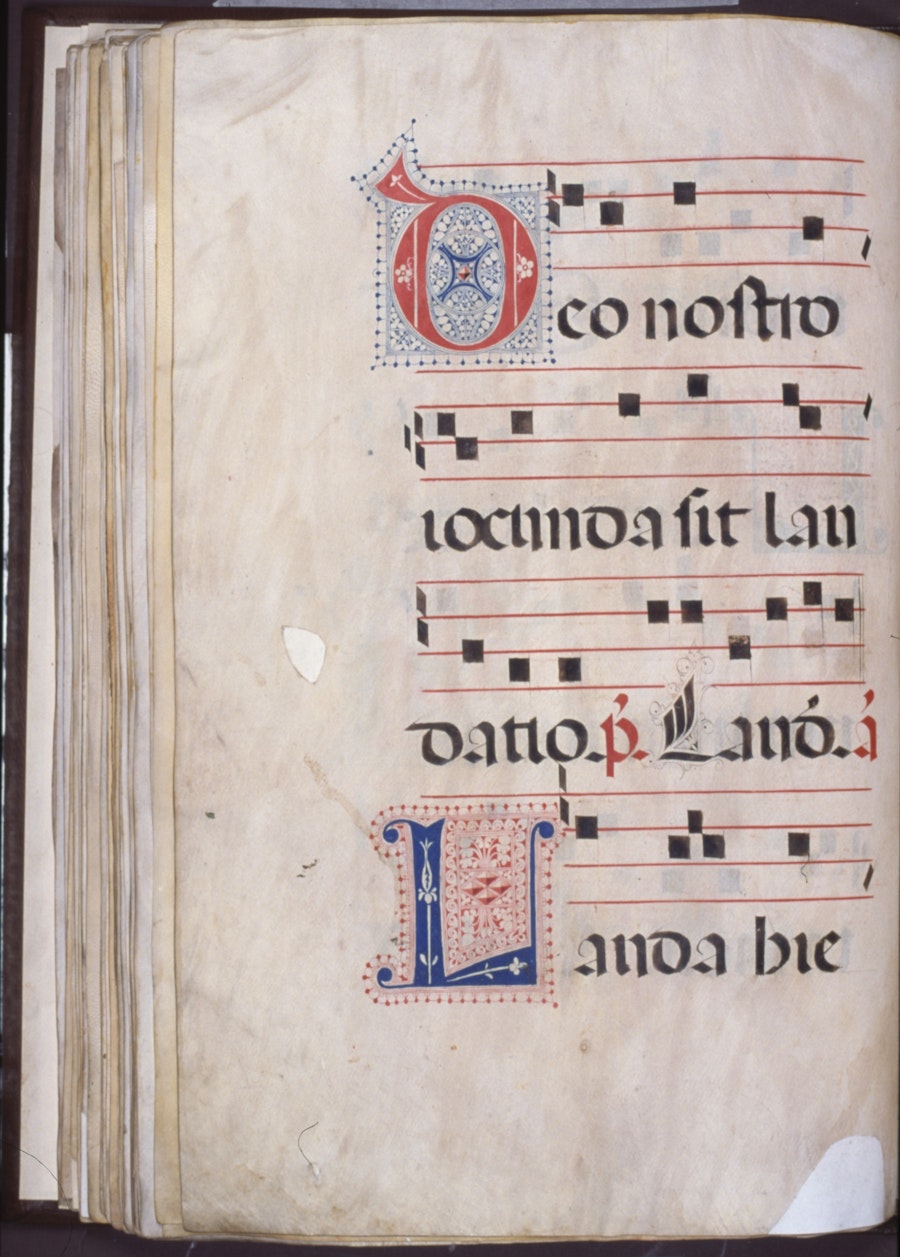 Deo nostro
iocunda sit lau
datio. p̄. Laud. aᷓ
Lauda hie